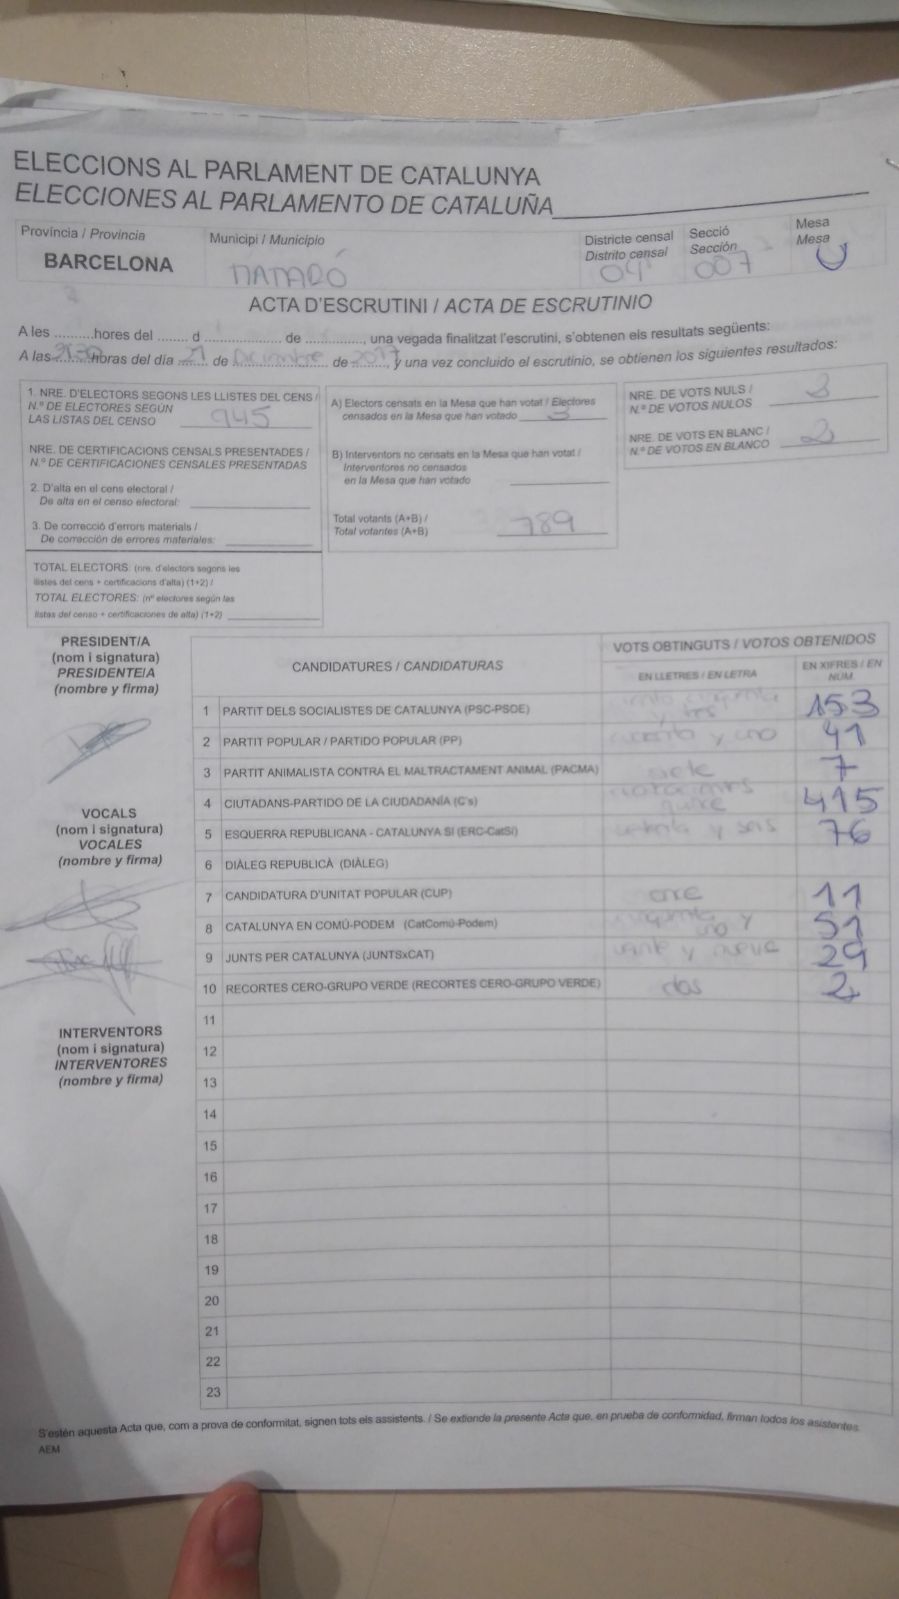 ELECCIONS AL PARLAMENT DE CATALUNYA
ELECCIONES AL PARLAMENTO DE CATALUÑA
Província / Provincia
BARCELONA
Municipi / Municipio
MATARÓ
Districte censal
Distrito censal
04
Secció
Sección
007
Mesa
Mesa
U
ACTA D'ESCRUTINI / ACTA DE ESCRUTINIO
A les ..........hores del ........ d ...................... de ..............., una vegada finalitzat l'escrutini, s'obtenen els resultats següents:
A las 21:30 horas del día 21 de Diciembre de 2017, y una vez concluido el escrutinio, se obtienen los siguientes resultados:
1. NRE. D'ELECTORS SEGONS LES LLISTES DEL CENS /
N.º DE ELECTORES SEGÚN
LAS LISTAS DEL CENSO 945
NRE. DE CERTIFICACIONS CENSALS PRESENTADES /
N.º DE CERTIFICACIONES CENSALES PRESENTADAS
2. D'alta en el cens electoral /
De alta en el censo electoral:
3. De correcció d'errors materials /
De corrección de errores materiales:
TOTAL ELECTORS: (nre. d'electors segons les
llistes del cens + certificacions d'alta) (1+2) /
TOTAL ELECTORES: (nº electores según las
listas del censo + certificaciones de alta) (1+2)
A) Electors censats en la Mesa que han votat / Electores
censados en la Mesa que han votado 3
B) Interventors no censats en la Mesa que han votat /
Interventores no censados
en la Mesa que han votado
Total votants (A+B) /
Total votantes (A+B) 789
NRE. DE VOTS NULS /
N.º DE VOTOS NULOS
NRE. DE VOTS EN BLANC /
N.º DE VOTOS EN BLANCO 2
PRESIDENT/A
(nom i signatura)
PRESIDENTE/A
(nombre y firma)
VOCALS
(nom i signatura)
VOCALES
(nombre y firma)
INTERVENTORS
(nom i signatura)
INTERVENTORES
(nombre y firma)
CANDIDATURES / CANDIDATURAS
VOTS OBTINGUTS / VOTOS OBTENIDOS
EN LLETRES / EN LETRA
EN XIFRES / EN NÚM.
1 PARTIT DELS SOCIALISTES DE CATALUNYA (PSC-PSOE) ciento cincuenta y tres 153
2 PARTIT POPULAR / PARTIDO POPULAR (PP) cuarenta y uno 41
3 PARTIT ANIMALISTA CONTRA EL MALTRACTAMENT ANIMAL (PACMA) siete 7
4 CIUTADANS-PARTIDO DE LA CIUDADANÍA (C's) quince 415
5 ESQUERRA REPUBLICANA - CATALUNYA SÍ (ERC-CatSí) setenta y seis 76
6 DIÀLEG REPUBLICÀ (DIÀLEG)
7 CANDIDATURA D'UNITAT POPULAR (CUP) once 11
8 CATALUNYA EN COMÚ-PODEM (CatComú-Podem) cincuenta y uno 51
9 JUNTS PER CATALUNYA (JUNTSxCAT) y nueve 29
10 RECORTES CERO-GRUPO VERDE (RECORTES CERO-GRUPO VERDE) dos 2
11
12
13
14
15
16
17
18
19
20
21
22
23
S'estén aquesta Acta que, com a prova de conformitat, signen tots els assistents. / Se extiende la presente Acta que, en prueba de conformidad, firman todos los asistentes.
AEM